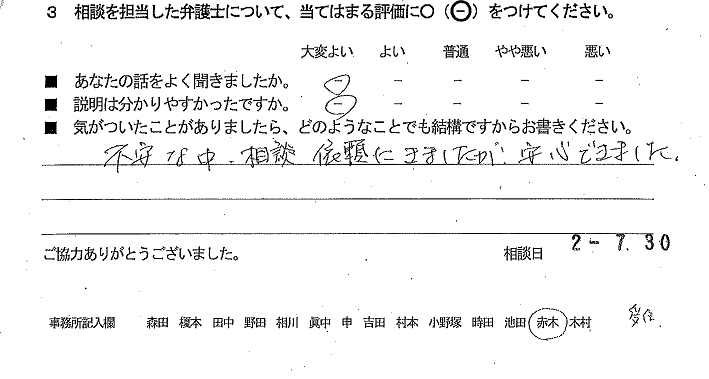 3 相談を担当した弁護士について、当てはまる評価に○(⊖)をつけてください。
大変よい よい 普通 やや悪い 悪い
■ あなたの話をよく聞きましたか。 − − − − −
■ 説明は分かりやすかったですか。 − − − − −
■ 気がついたことがありましたら、どのようなことでも結構ですからお書きください。
不安な中、相談 依頼にきましたが、安心できました。
ご協力ありがとうございました。 相談日 2-7.30
事務所記入欄 森田 榎本 田中 野田 相川 眞中 申 吉田 村本 小野塚 時田 池田 赤木 木村 受任